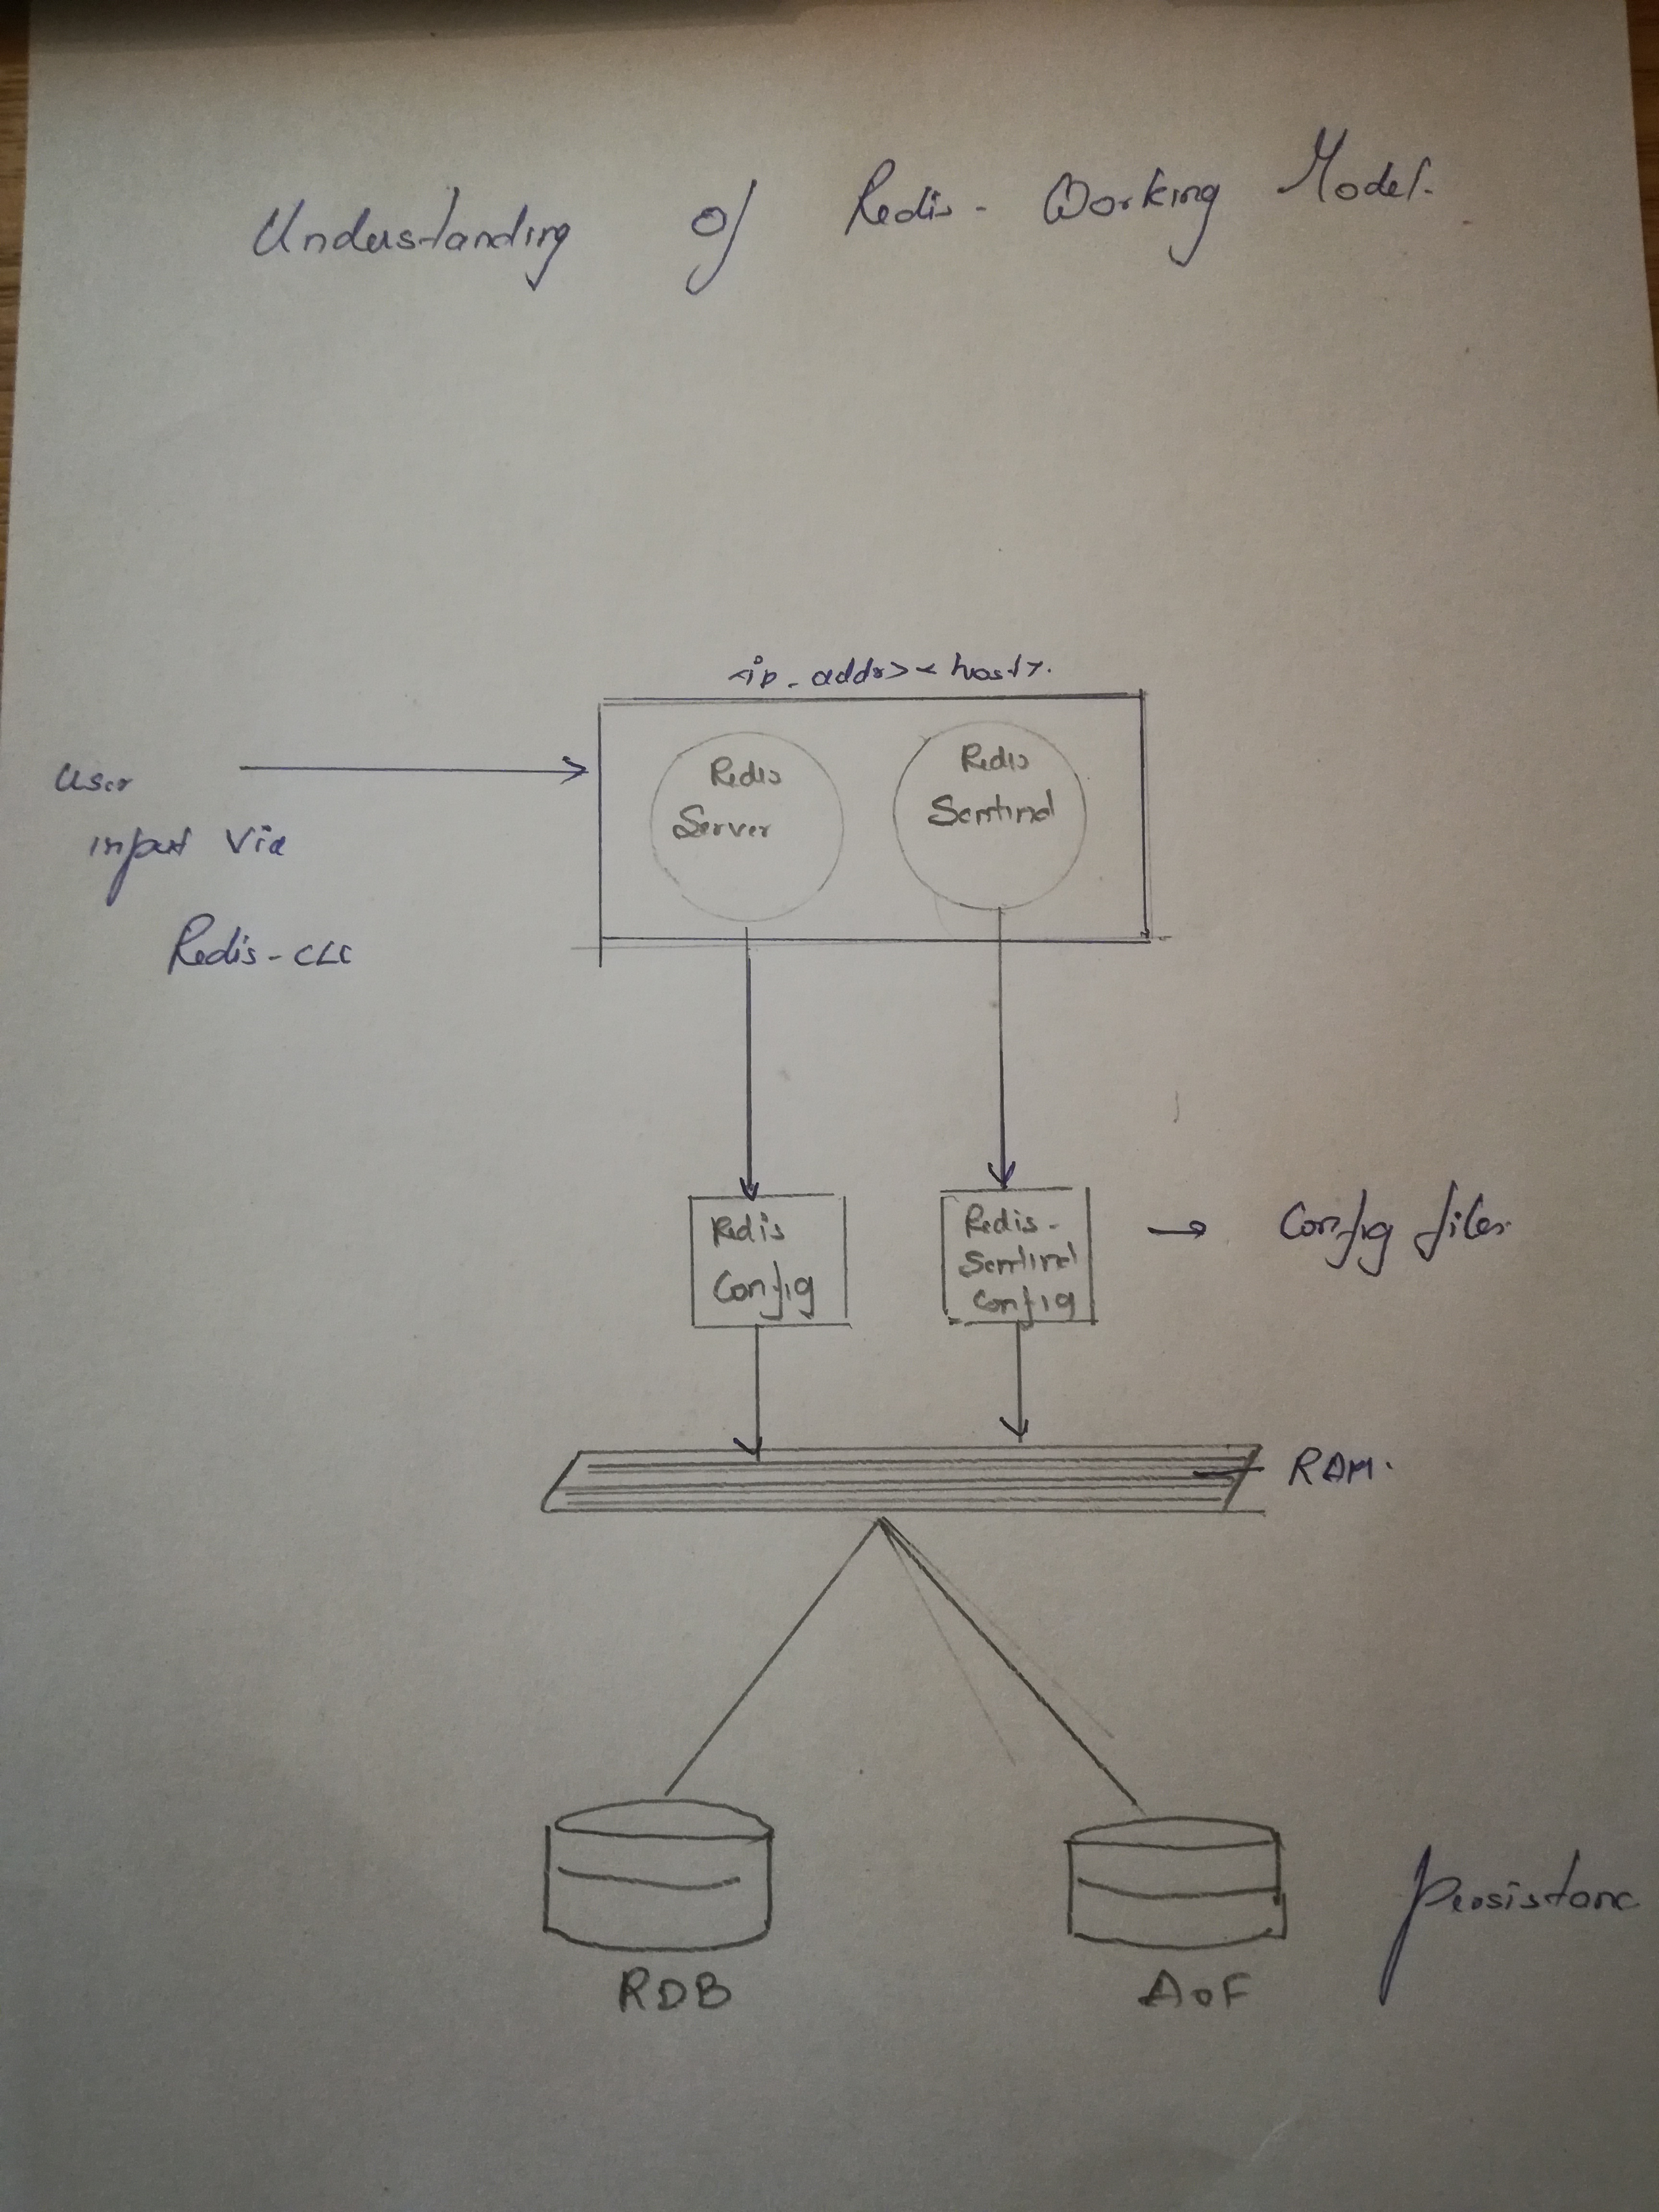 Understanding of Redis - Working Model.
<ip_addr> <host>.
User
input via
Redis-CLI
Redis
Server
Redis
Sentinel
Redis
Config
Redis-
Sentinel
Config
→ Config files.
RAM.
RDB
AOF
Persistanc